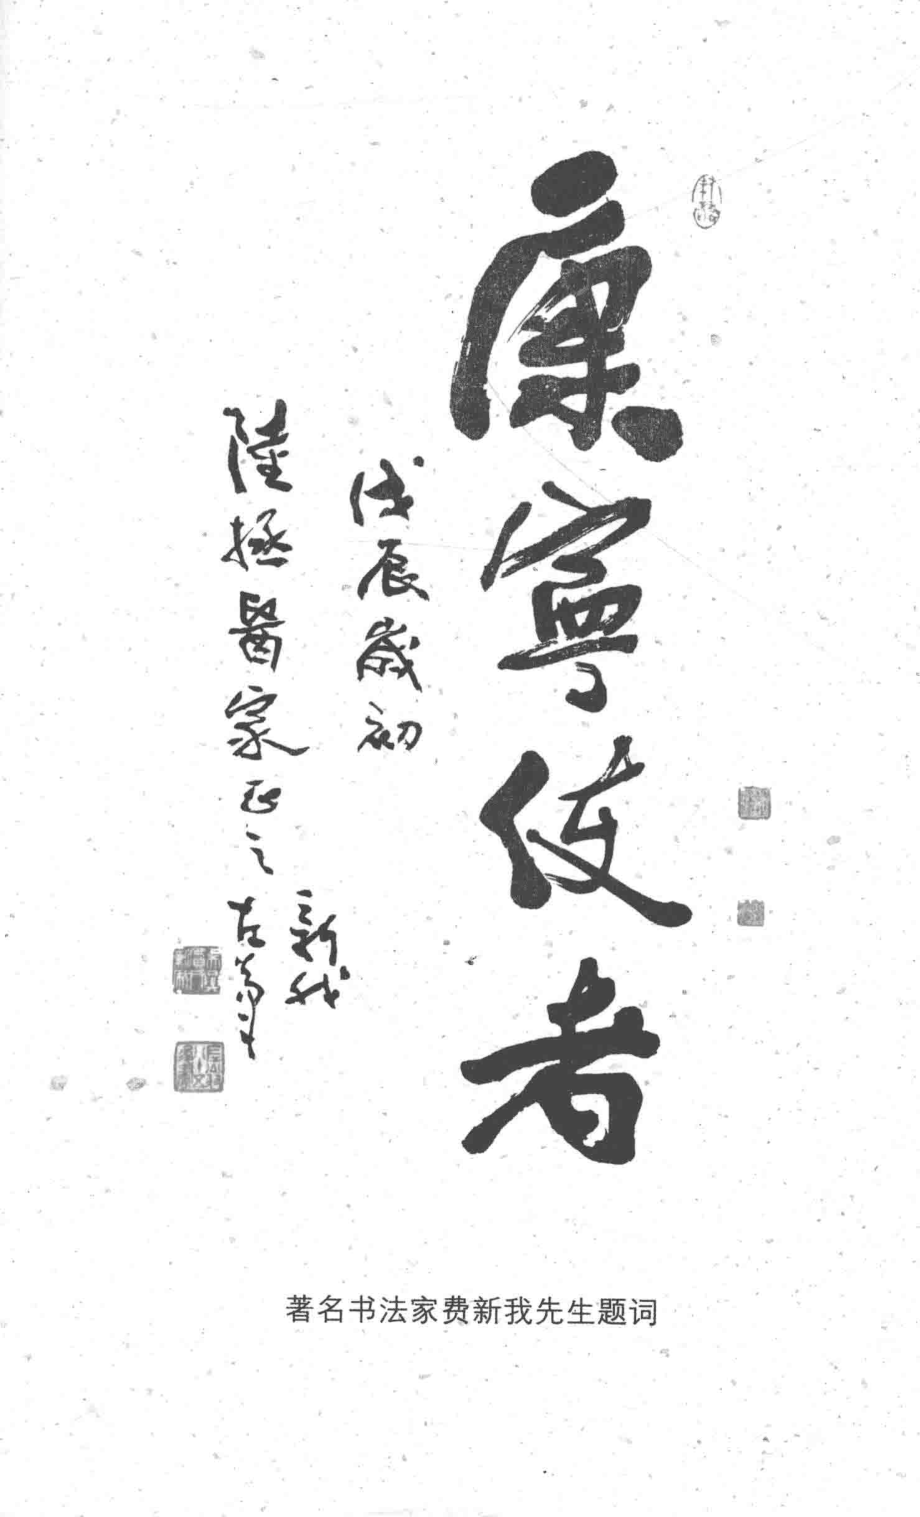 康寧使者
戊辰歲初
陸拯醫家正之
新我左筆
著名书法家费新我先生题词